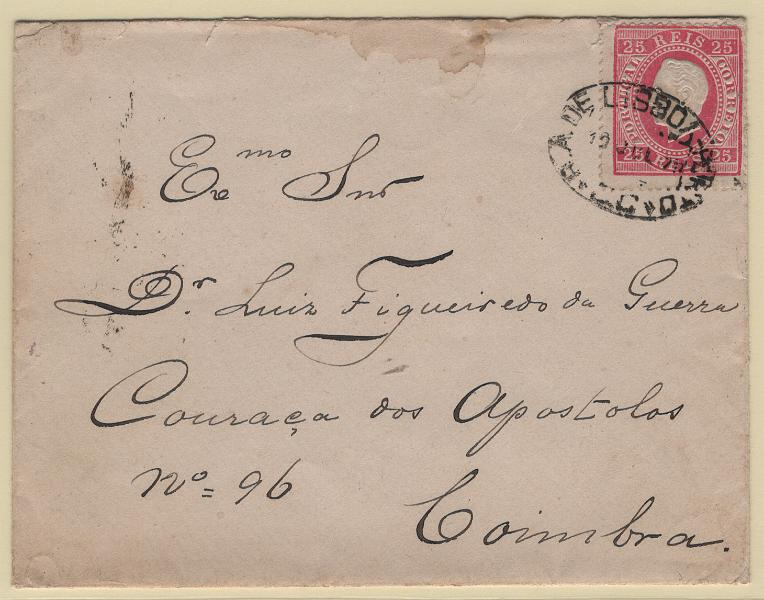 25 REIS 25
CORREIO
25 25
DE LISBOA
19 JUL
Exmo Snr
Dr. Luiz Figueiredo da Guerra
Couraça dos Apostolos
Nº= 96
Coimbra.